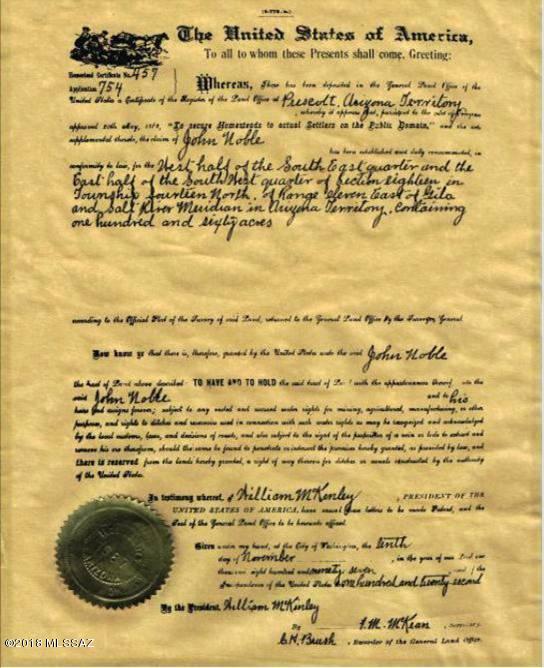 The United States of America,
To all to whom these Presents shall come, Greeting:
Homestead Certificate No. 457
Application 754
Whereas, There has been deposited in the General Land Office of the
United States a Certificate of the Register of the Land Office at Prescott, Arizona Territory
, whereby it appears that, pursuant to the Act of Congress
approved 20th May, 1862, "To secure Homesteads to actual Settlers on the Public Domain," and the acts
supplemental thereto, the claim of John Noble
has been established and duly consummated, in
conformity to law, for the West half of the South East quarter and the
East half of the South West quarter of Section eighteen in
Township fourteen North, of Range eleven East of Gila
and Salt River Meridian in Arizona Territory, containing
one hundred and sixty acres
according to the Official Plat of the Survey of said Land, returned to the General Land Office by the Surveyor General
Now know ye that there is, therefore, granted by the United States unto the said John Noble
the tract of Land above described TO HAVE AND TO HOLD the said tract of Land with the appurtenances thereof unto the
said John Noble and to his
heirs and assigns forever; subject to any vested and accrued water rights for mining, agricultural, manufacturing, or other
purposes, and rights to ditches and reservoirs used in connection with such water rights as may be recognized and acknowledged
by the local customs, laws, and decisions of courts, and also subject to the right of the proprietor of a vein or lode to extract and
remove his ore therefrom, should the same be found to penetrate or intersect the premises hereby granted, as provided by law, and
there is reserved from the lands hereby granted, a right of way thereon for ditches or canals constructed by the authority
of the United States.
In testimony whereof, I William McKinley , PRESIDENT OF THE
UNITED STATES OF AMERICA, have caused these letters to be made Patent, and the
Seal of the General Land Office to be hereunto affixed.
Given under my hand, at the City of Washington, the tenth
day of November , in the year of our Lord one
thousand eight hundred and ninety seven , and of the
Independence of the United States one hundred and twenty second
By the President, William McKinley
By F. M. McKean , Secretary.
C. H. Brush , Recorder of the General Land Office.
©2018 MLSSAZ